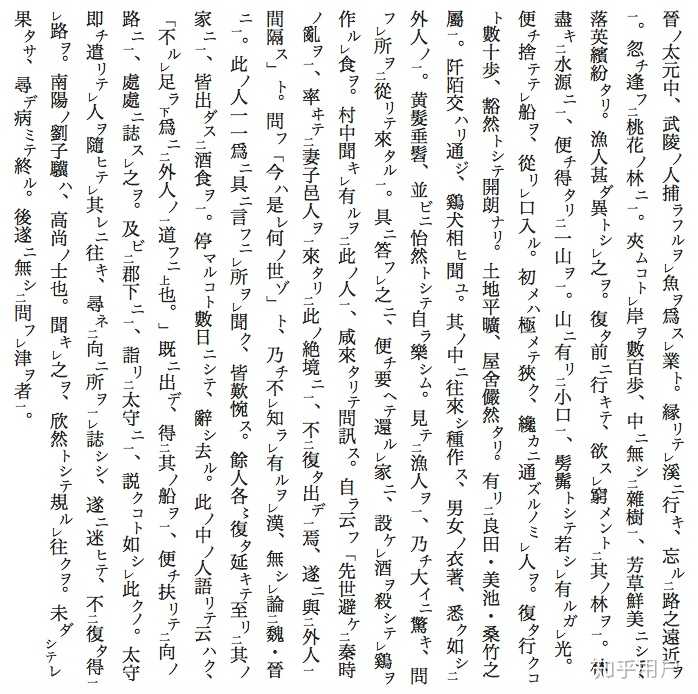 晉ノ太元中、武陵ノ人捕ラフルヲレ魚ヲ爲スレ業ト。縁リテレ溪ニ行キ、忘ル二路之遠近ヲ
一。忽チ逢フ二桃花ノ林ニ一。夾ムコトレ岸ヲ數百歩、中ニ無シ二雜樹一、芳草鮮美ニシテ、
落英繽紛タリ。漁人甚ダ異トシレ之ヲ。復タ前ニ行キテ、欲スレ窮メント二其ノ林ヲ一。林
盡キ二水源ニ一、便チ得タリ二一山ヲ一。山ニ有リ二小口一、髣髴トシテ若シレ有ルガレ光。
便チ捨テテレ船ヲ、從リレ口入ル。初メハ極メテ狹ク、纔カニ通ズルノミレ人ヲ。復タ行クコ
ト數十歩、豁然トシテ開朗ナリ。土地平曠、屋舍儼然タリ。有リ二良田・美池・桑竹之
屬一。阡陌交ハリ通ジ、鷄犬相ヒ聞ユ。其ノ中ニ往來シ種作ス、男女ノ衣著、悉ク如シ二
外人ノ一。黄髮垂髫、並ビニ怡然トシテ自ラ樂シム。見テ二漁人ヲ一、乃チ大イニ驚キ、問
フレ所ヲ二從リテ來タル一。具ニ答フレ之ニ、便チ要ヘテ還ルレ家ニ、設ケレ酒ヲ殺シテレ鷄ヲ
作ルレ食ヲ。村中聞キレ有ルヲ二此ノ人一、咸來タリテ問訊ス。自ラ云フ「先世避ケ二秦時
ノ亂ヲ一、率ヰテ二妻子邑人ヲ一來タリ二此ノ絶境ニ一、不二復タ出デ一焉、遂ニ與二外人一
間隔ス」ト。問フ「今ハ是レ何ノ世ゾ」ト、乃チ不レ知ラレ有ルヲレ漢、無シレ論二魏・晉
ニ一。此ノ人一一爲ニ具ニ言フ二レ所ヲレ聞ク、皆歎惋ス。餘人各〻復タ延キテ至リ二其ノ
家ニ一、皆出ダス二酒食ヲ一。停マルコト數日ニシテ、辭シ去ル。此ノ中ノ人語リテ云ハク、
「不ルレ足ラ下爲ニ二外人ノ一道フニ上也。」既ニ出デ、得二其ノ船ヲ一、便チ扶リテ二向ノ
路ニ一、處處ニ誌スレ之ヲ。及ビ二郡下ニ一、詣リ二太守ニ一、説クコト如シレ此クノ。太守
即チ遣リテレ人ヲ隨ヒテレ其レニ往キ、尋ネ二向ニ所ヲ一レ誌シシ、遂ニ迷ヒテ、不二復タ得一
レ路ヲ。南陽ノ劉子驥ハ、高尚ノ士也。聞キレ之ヲ、欣然トシテ規ルレ往クヲ。未ダシテレ
果タサ、尋デ病ミテ終ル。後遂ニ無シ二問フレ津ヲ者一。
知乎用户